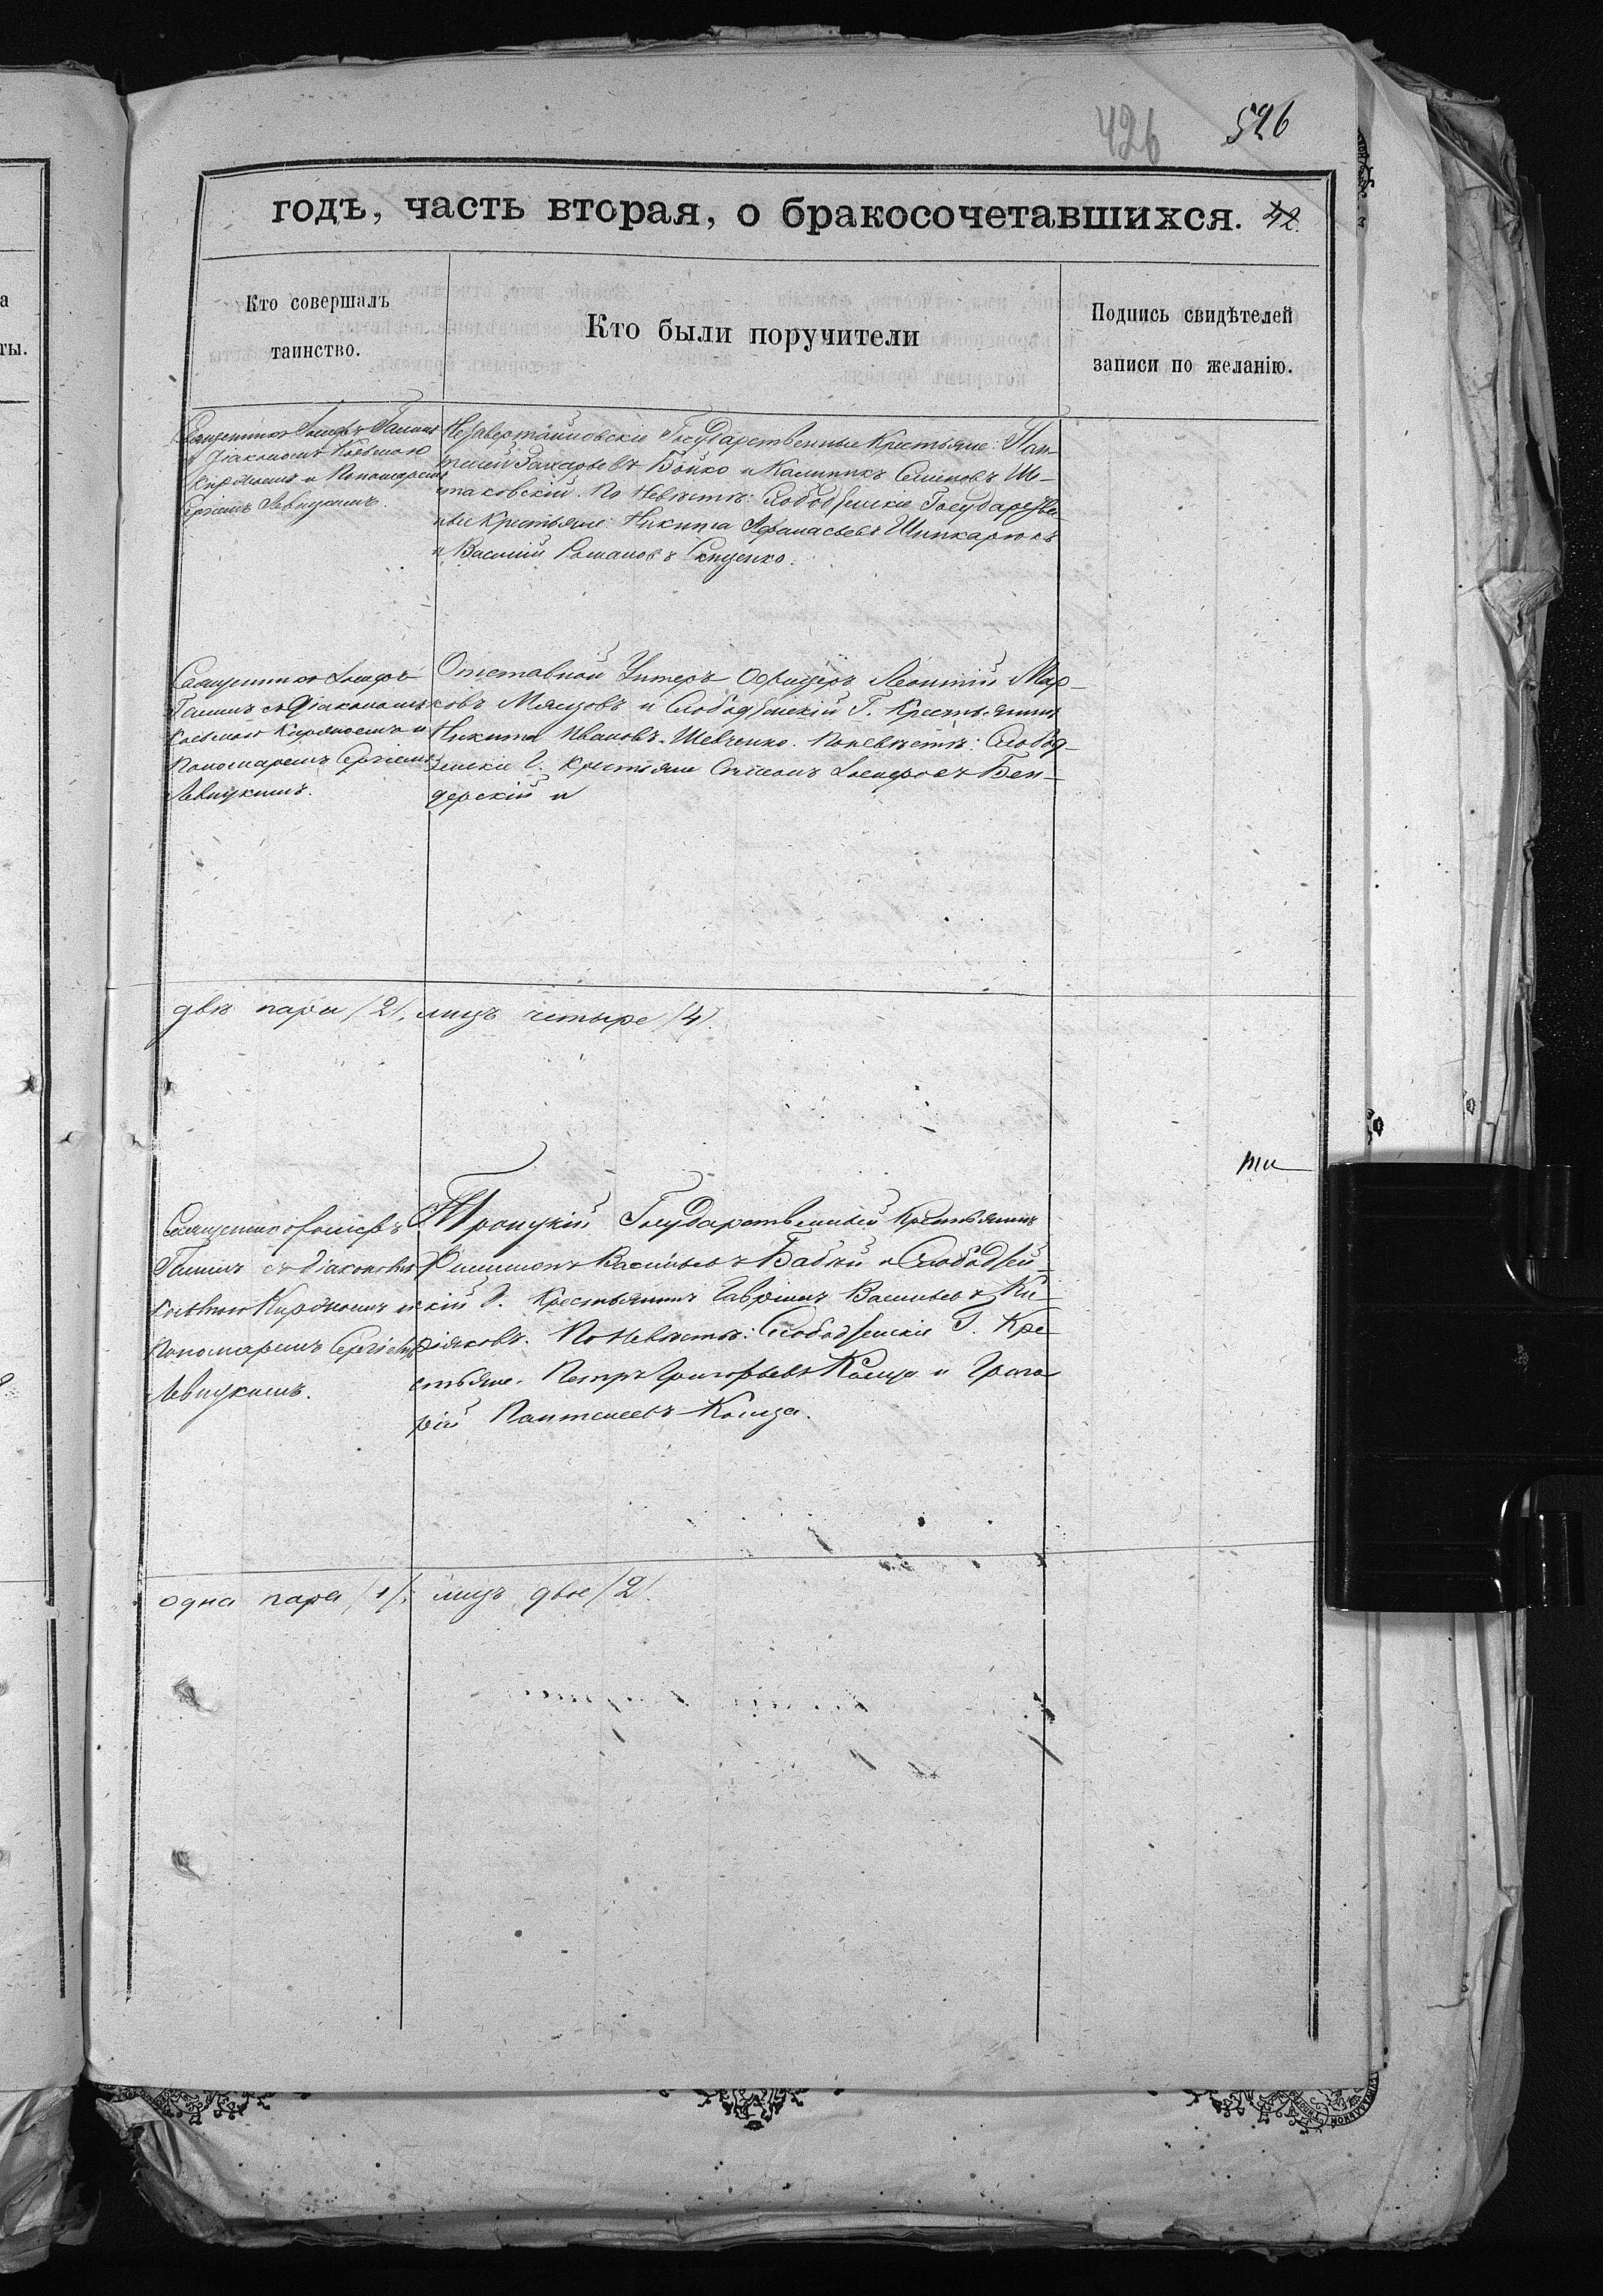 426 526
годъ, часть вторая, о бракосочетавшихся. 42.
Кто совершалъ
таинство.
Кто были поручители
Подпись свидѣтелей
записи по желанію.
Священникъ Іосифъ Галинъ
съ Діакономъ Косьмою
и Пономаремъ
Сергіемъ Левицкимъ.
Незавертайловскіе Государственные Крестьяне: Пан-
телей Захарьевъ Бойко и Калинникъ Семеновъ Ше-
стаковскій. По Невѣстѣ: Слободзейскіе Государствен-
ные Крестьяне Никита Афанасьевъ Шинкарюкъ
и Василій Романовъ
Священникъ Іосифъ
Галинъ съ Діакономъ
Косьмою и
Пономаремъ Сергіемъ
Левицкимъ.
Отставной Унтеръ Офицеръ Леонтій Мар-
ковъ Мясцовъ и Слободзейскій Г. Крестьянинъ
Никита Ивановъ Шевченко. По невѣстѣ: Слобод-
зейскіе Г. Крестьяне Симеонъ Іосифовъ Бен-
дерскій и
двѣ пары /2/, лицъ четыре /4/.
ти
Священникъ Іосифъ
Галинъ съ Діакономъ
Косьмою и
Пономаремъ Сергіемъ
Левицкимъ.
Троицкій Государственный Крестьянинъ
Филимонъ Васильевъ Бабій и Слободзей-
скій Г. Крестьянинъ Гавріилъ Васильевъ Ки-
ріяковъ. По Невѣстѣ: Слободзейскіе Г. Кре-
стьяне. Петръ Григорьевъ Коица и Григо-
рій Пантелеевъ Коица.
одна пара /1/, лицъ двое /2/.